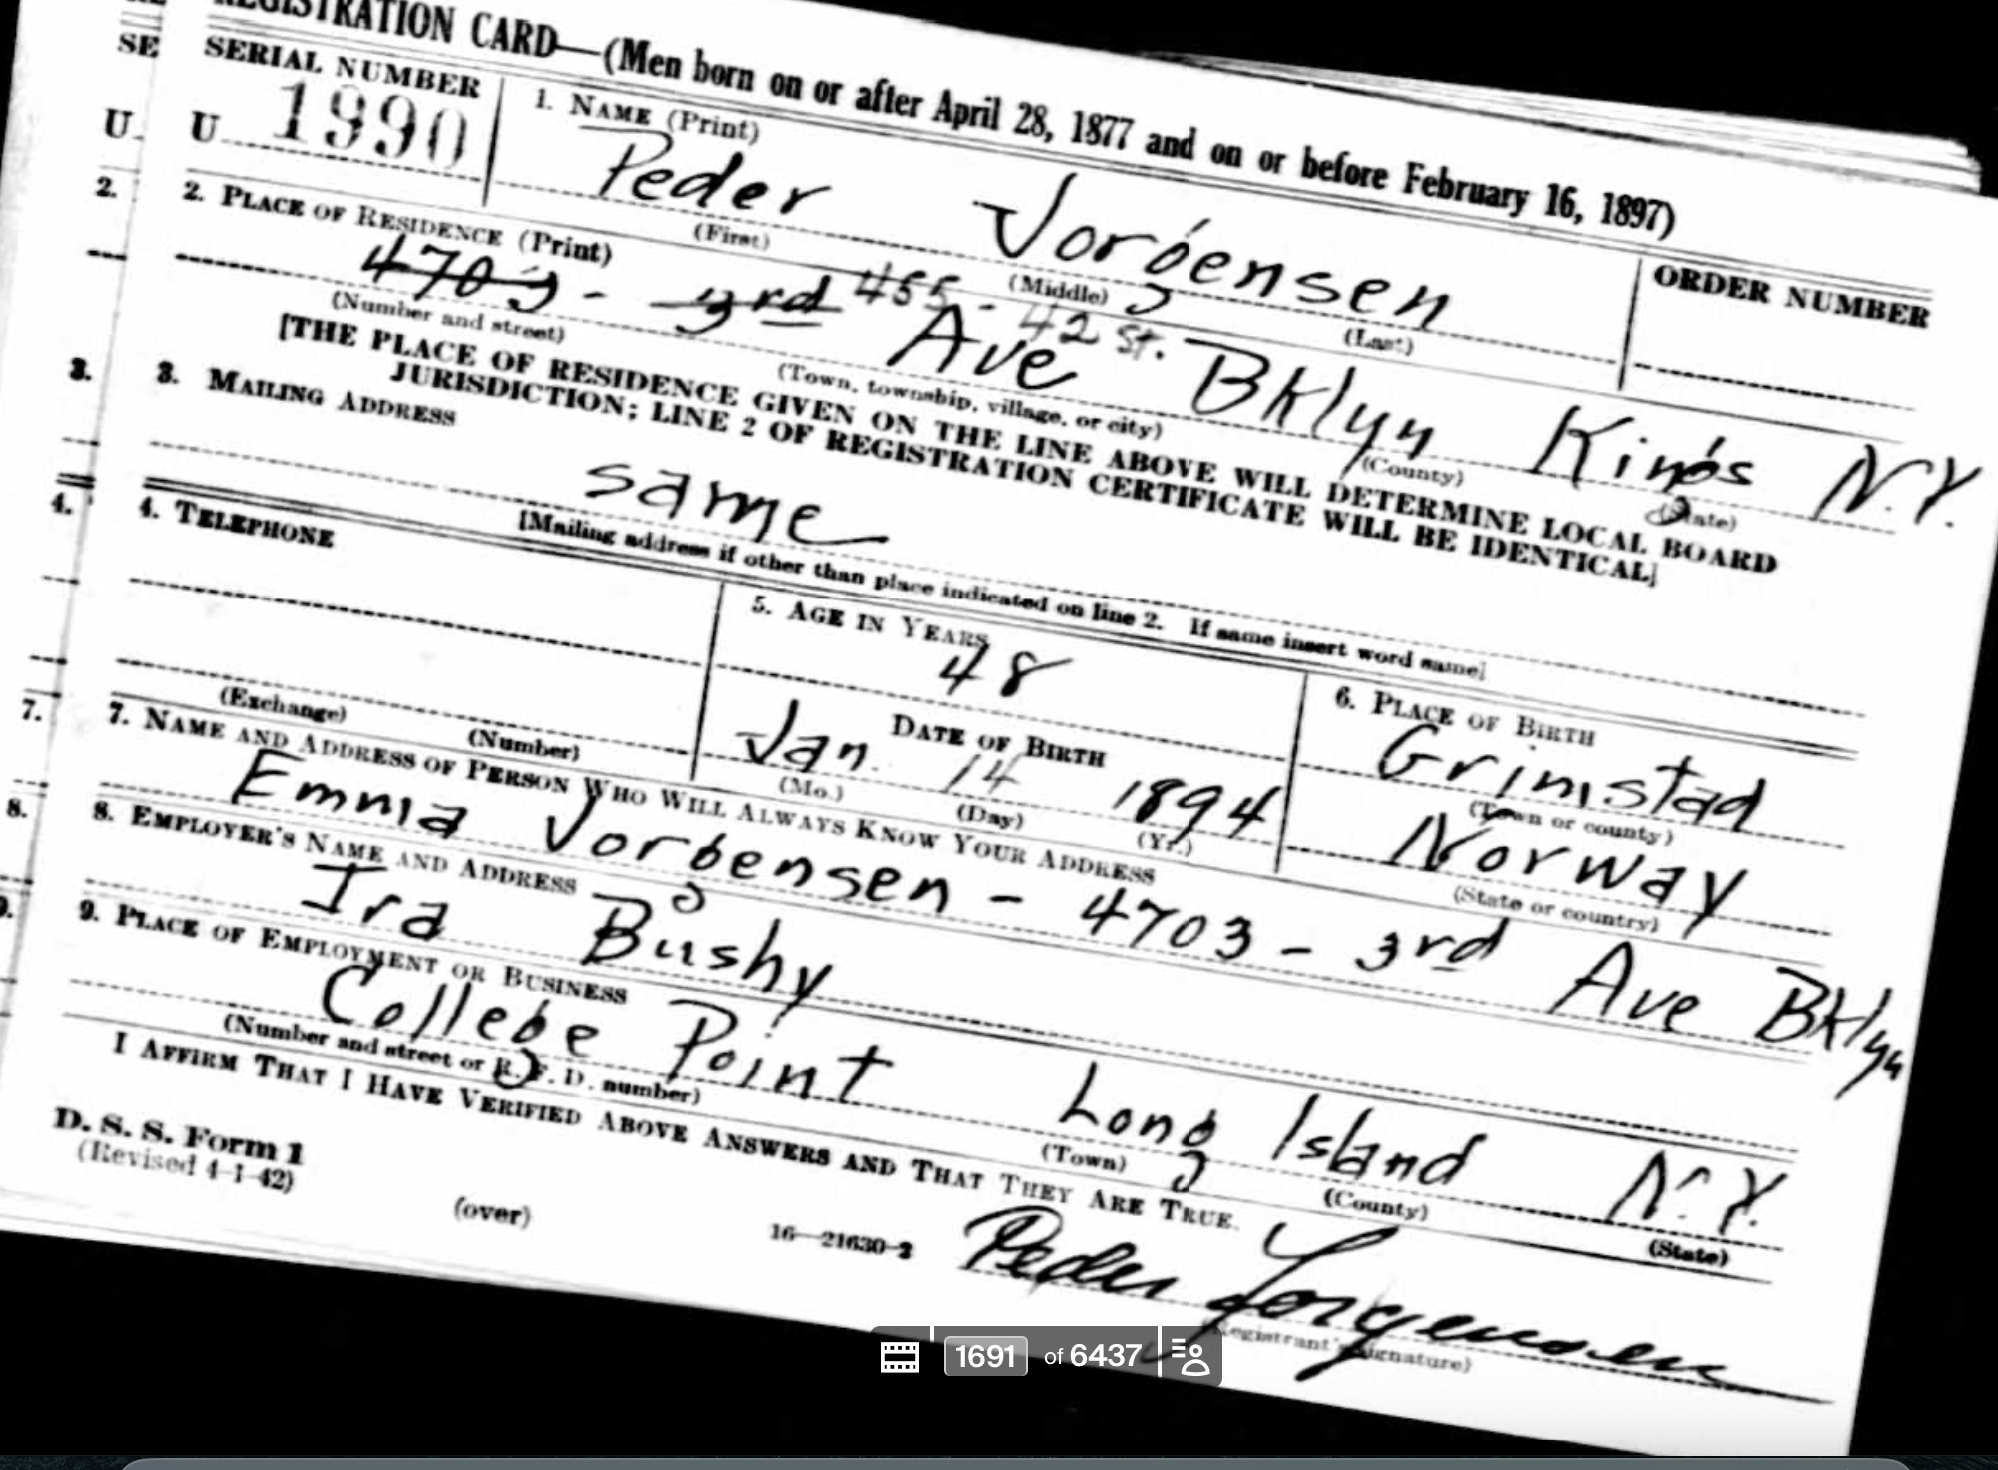 REGISTRATION CARD—(Men born on or after April 28, 1877 and on or before February 16, 1897)
SE
SERIAL NUMBER
1. NAME (Print)
ORDER NUMBER
U
U 1990
Peder Jorgensen
(First) (Middle) (Last)
2.
2. PLACE OF RESIDENCE (Print)
4703 - 3rd 455 - 42 St. Ave Bklyn Kings N.Y.
(Number and street) (Town, township, village, or city) (County) (State)
[THE PLACE OF RESIDENCE GIVEN ON THE LINE ABOVE WILL DETERMINE LOCAL BOARD
JURISDICTION; LINE 2 OF REGISTRATION CERTIFICATE WILL BE IDENTICAL]
3.
3. MAILING ADDRESS
same
[Mailing address if other than place indicated on line 2. If same insert word same]
4.
4. TELEPHONE
5. AGE IN YEARS
48
6. PLACE OF BIRTH
Grimstad
(Town or county)
DATE OF BIRTH
Jan. 14 1894
(Mo.) (Day) (Yr.)
Norway
(State or country)
(Exchange) (Number)
7.
7. NAME AND ADDRESS OF PERSON WHO WILL ALWAYS KNOW YOUR ADDRESS
Emma Jorgensen - 4703 - 3rd Ave Bklyn
8.
8. EMPLOYER'S NAME AND ADDRESS
Ira Bushy
9.
9. PLACE OF EMPLOYMENT OR BUSINESS
College Point Long Island N.Y.
(Number and street or R. F. D. number) (Town) (County) (State)
I AFFIRM THAT I HAVE VERIFIED ABOVE ANSWERS AND THAT THEY ARE TRUE.
D. S. S. Form 1
(Revised 4-1-42)
(over)
16—21630-2
Peder Jorgensen
(Registrant's signature)
1691 of 6437